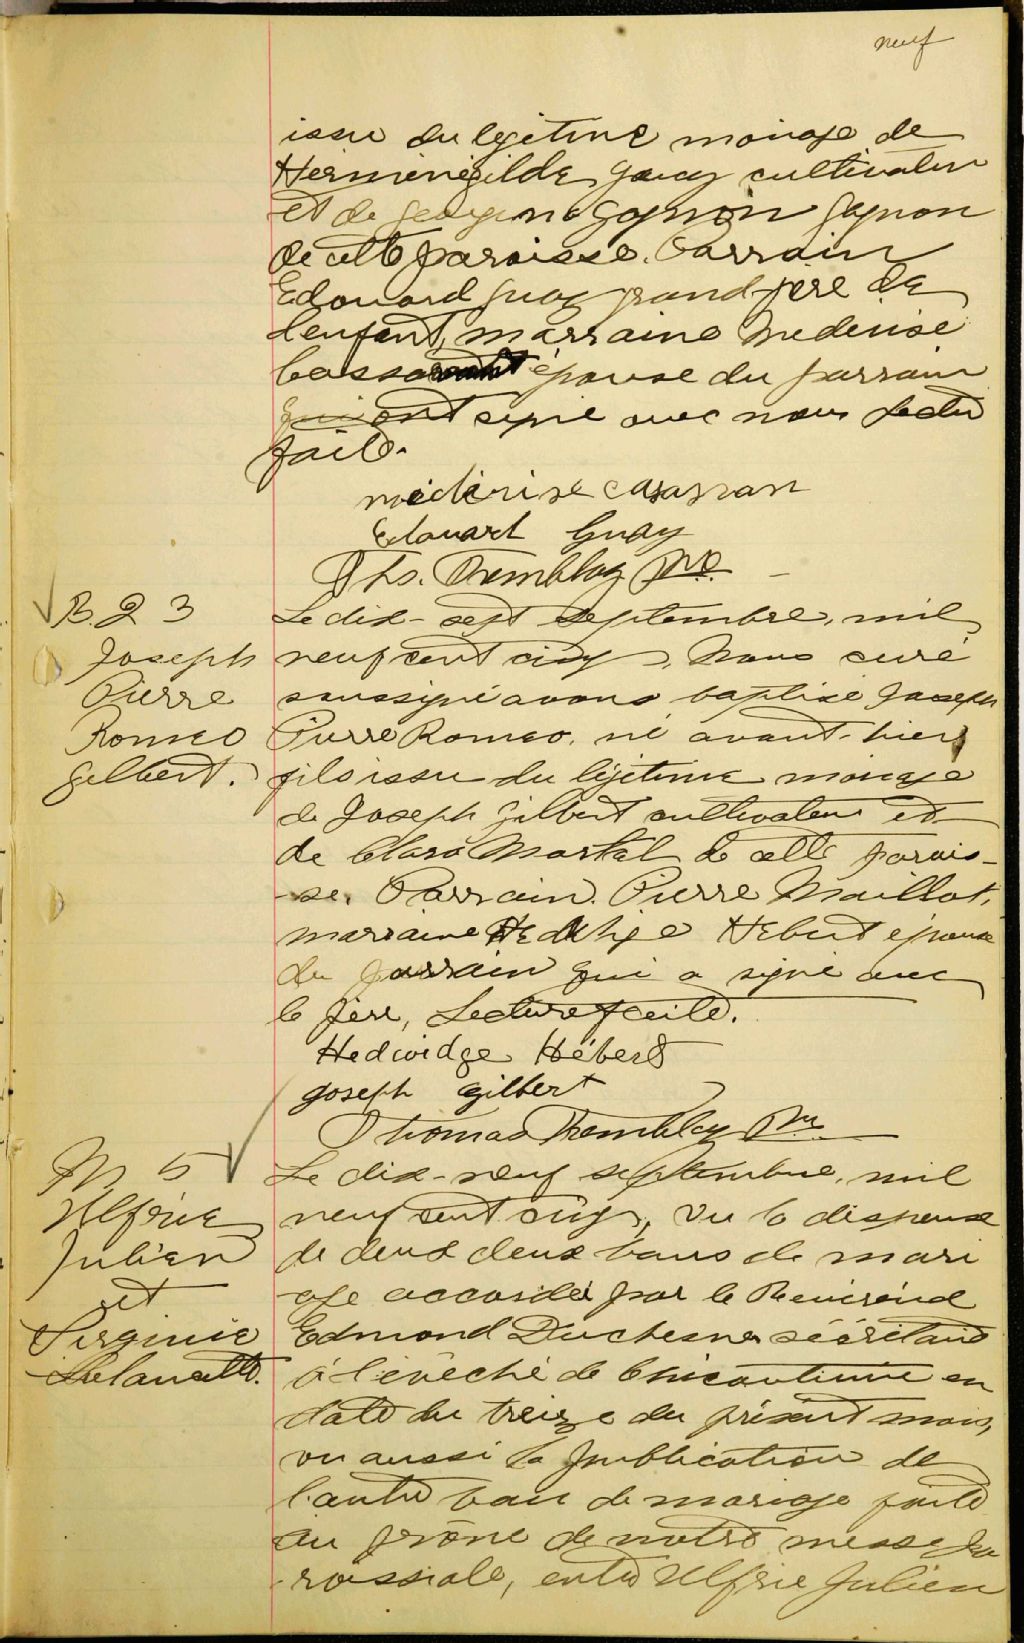 neuf
issu du legitime mariage de
Herménégilde Guay cultivateur
et de Georgina Gagnon Gagnon
de cette paroisse. Parrain
Edouard Guay grand-père de
l'enfant, marraine Mederise
épouse du parrain
qui ont signé avec nous Lecture
faite.
médérise casavan
Edouard Guay
Ths. Tremblay Ptre.
B. 23
Joseph
Pierre
Romeo
Gilbert.
Le dix-sept septembre, mil
neuf cent cinq, Nous curé
soussigné avons baptisé Joseph
Pierre Romeo, né avant-hier
fils issu du légitime mariage
de Joseph Gilbert cultivateur et
de Clara Martel de cette parois-
-se. Parrain Pierre Maillot,
marraine Hedwige Hebert épouse
du parrain qui a signé avec
le père, Lecture faite.
Hedwidge Hébert
Joseph Gilbert
Thomas Tremblay Ptre
M 5
Ulfrie
Julien
et
Virginie
Le dix-neuf septembre, mil
neuf cent cinq, vu la dispense
de deux deux bans de mari
age accordée par le Révérend
Edmond Duchesne sécrétaire
à l'évêché de Chicoutimi en
date du treize du présent mois,
vu aussi la publication de
l'autre ban de mariage faite
au prône de notre messe pa
-roissiale, entre Ulfrie Julien